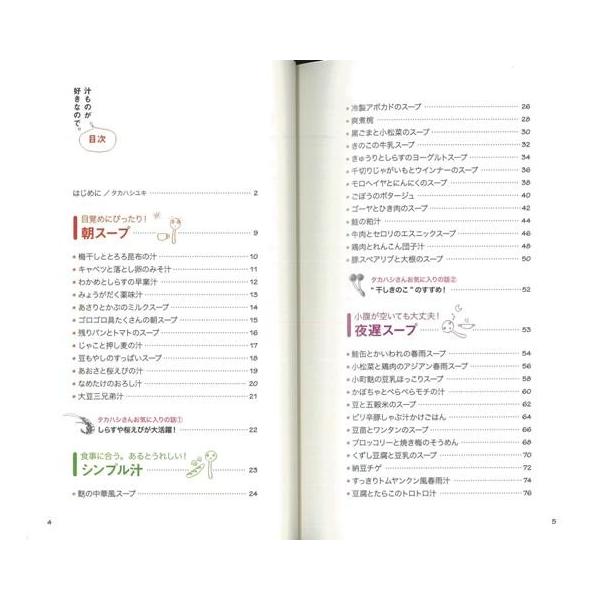 汁ものが、
好きなので。
目次
はじめに／タカハシユキ 2
目覚めにぴったり！
朝スープ 9
梅干しととろろ昆布の汁 10
キャベツと落とし卵のみそ汁 11
わかめとしらすの早業汁 12
みょうがだく薬味汁 13
あさりとかぶのミルクスープ 14
ゴロゴロ具たくさんの朝スープ 15
残りパンとトマトのスープ 16
じゃこと押し麦の汁 17
豆もやしのすっぱいスープ 18
あおさと桜えびの汁 20
なめたけのおろし汁 20
大豆三兄弟汁 21
タカハシさんお気に入りの話①
しらすや桜えびが大活躍！ 22
食事に合う。あるとうれしい！
シンプル汁 23
麩の中華風スープ 24
4
冷製アボカドのスープ 26
爽煮椀 28
黒ごまと小松菜のスープ 30
きのこの牛乳スープ 32
きゅうりとしらすのヨーグルトスープ 34
千切りじゃがいもとウインナーのスープ 36
モロヘイヤとにんにくのスープ 38
ごぼうのポタージュ 40
ゴーヤとひき肉のスープ 42
鮭の粕汁 44
牛肉とセロリのエスニックスープ 46
鶏肉とれんこん団子汁 48
豚スペアリブと大根のスープ 50
タカハシさんお気に入りの話②
"干しきのこ"のすすめ！ 52
小腹が空いても大丈夫！
夜遅スープ 53
鮭缶とかいわれの春雨スープ 54
小松菜と鶏肉のアジアン春雨スープ 56
小町麩の豆乳ほっこりスープ 58
かぼちゃとぺらぺらモチの汁 60
豆と五穀米のスープ 62
ピリ辛豚しゃぶ汁かけごはん 64
豆苗とワンタンのスープ 66
ブロッコリーと焼き梅のそうめん 68
くずし豆腐と豆乳のスープ 70
納豆チゲ 72
すっきりトムヤンクン風春雨汁 74
豆腐とたらこのトロトロ汁 76
5